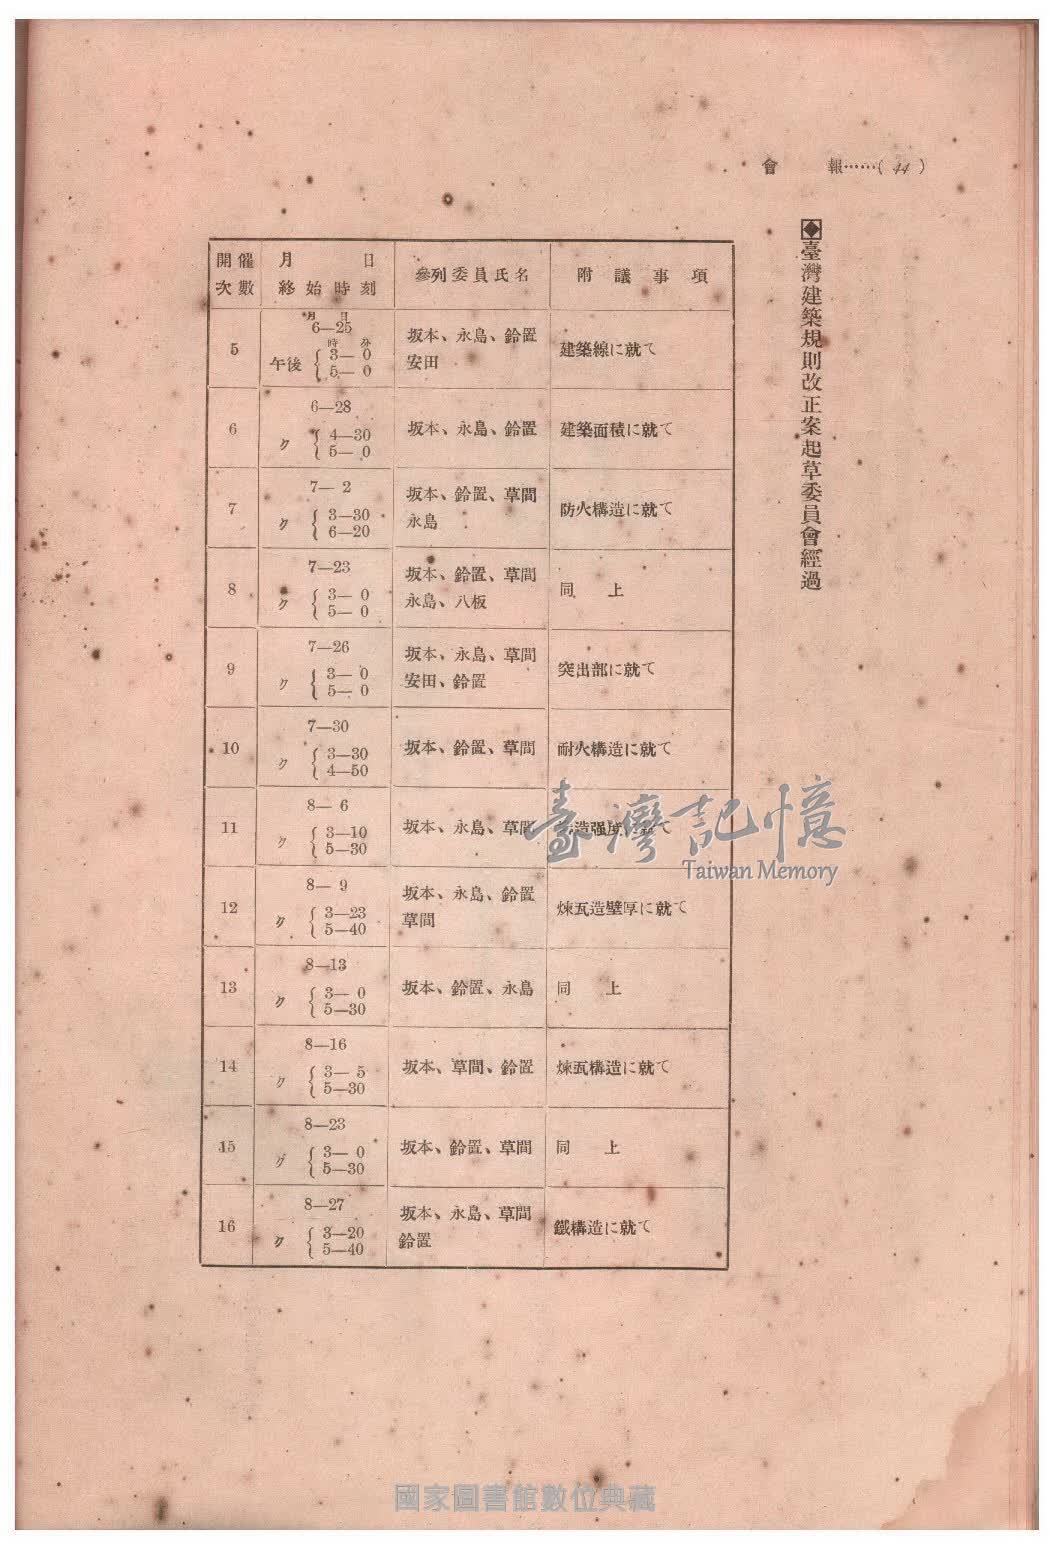 會　報……( 44 )
臺灣建築規則改正案起草委員會經過
開催次數　月　日終始時刻　參列委員氏名　附議事項
5　6月—25日　午後 3時—0分 5—0　坂本、永島、鈴置 安田　建築線に就て
6　6—28　〃 4—30 5—0　坂本、永島、鈴置　建築面積に就て
7　7—2　〃 3—30 6—20　坂本、鈴置、草間 永島　防火構造に就て
8　7—23　〃 3—0 5—0　坂本、鈴置、草間 永島、八板　同上
9　7—26　〃 3—0 5—0　坂本、永島、草間 安田、鈴置　突出部に就て
10　7—30　〃 3—30 4—50　坂本、鈴置、草間　耐火構造に就て
11　8—6　〃 3—10 5—30　坂本、永島、草間　造强度に就て
12　8—9　〃 3—23 5—40　坂本、永島、鈴置 草間　煉瓦造壁厚に就て
13　8—13　〃 3—0 5—30　坂本、鈴置、永島　同上
14　8—16　〃 3—5 5—30　坂本、草間、鈴置　煉瓦構造に就て
15　8—23　〃 3—0 5—30　坂本、鈴置、草間　同上
16　8—27　〃 3—20 5—40　坂本、永島、草間 鈴置　鐵構造に就て
臺灣記憶
Taiwan Memory
國家圖書館數位典藏